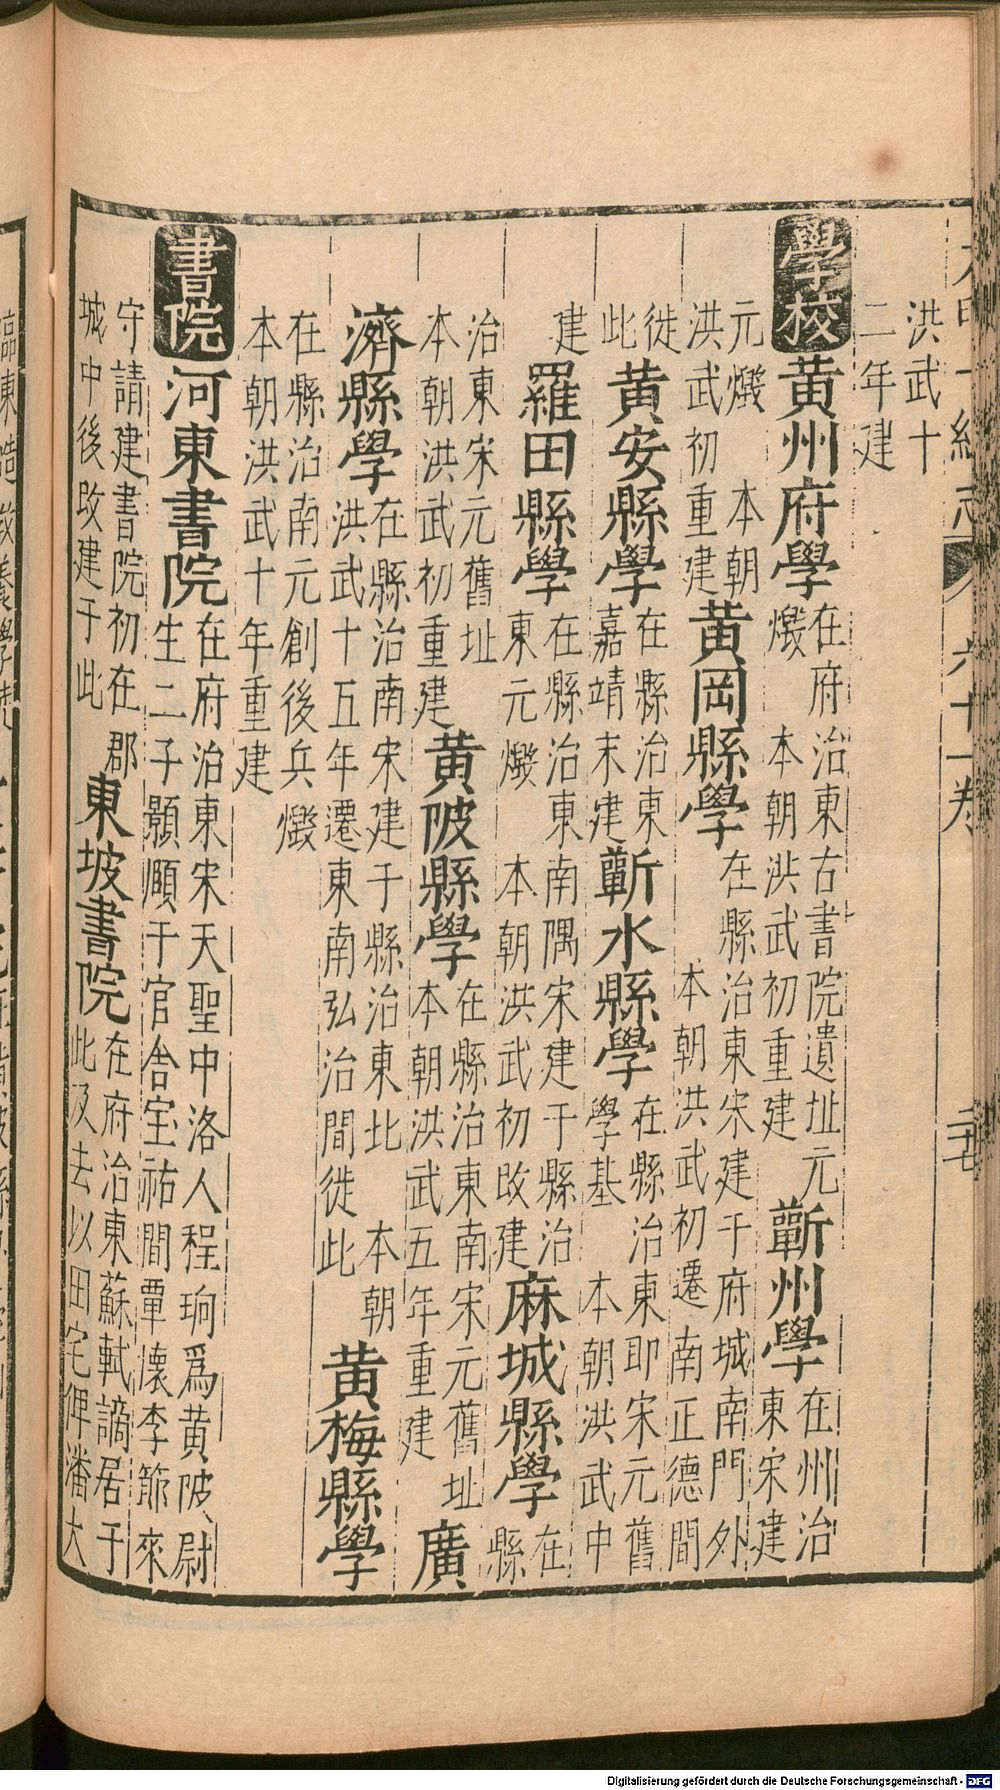 洪武十
二年建
學校
黃州府學
在府治東古書院遺址元
燬 本朝洪武初重建
蘄州學
在州治
東宋建
元燬 本朝
洪武初重建
黃岡縣學
在縣治東宋建于府城南門外
本朝洪武初遷南正德間
徙
此
黃安縣學
在縣治東
嘉靖末建
蘄水縣學
在縣治東即宋元舊
學基 本朝洪武中
建
羅田縣學
在縣治東南隅宋建于縣治
東元燬 本朝洪武初改建
麻城縣學
在
縣
治東宋元舊址
本朝洪武初重建
黃陂縣學
在縣治東南宋元舊址
本朝洪武五年重建
廣
濟縣學
在縣治南宋建于縣治東北 本朝
洪武十五年遷東南弘治間徙此
黃梅縣學
在縣治南元創後兵燬
本朝洪武十年重建
書院
河東書院
在府治東宋天聖中洛人程珦爲黃陂尉
生二子顥頤于官舍宝祐間覃懷李節來
守請建書院初在郡
城中後改建于此
東坡書院
在府治東蘇軾謫居于
此及去以田宅俾潘大
Digitalisierung gefördert durch die Deutsche Forschungsgemeinschaft - DFG